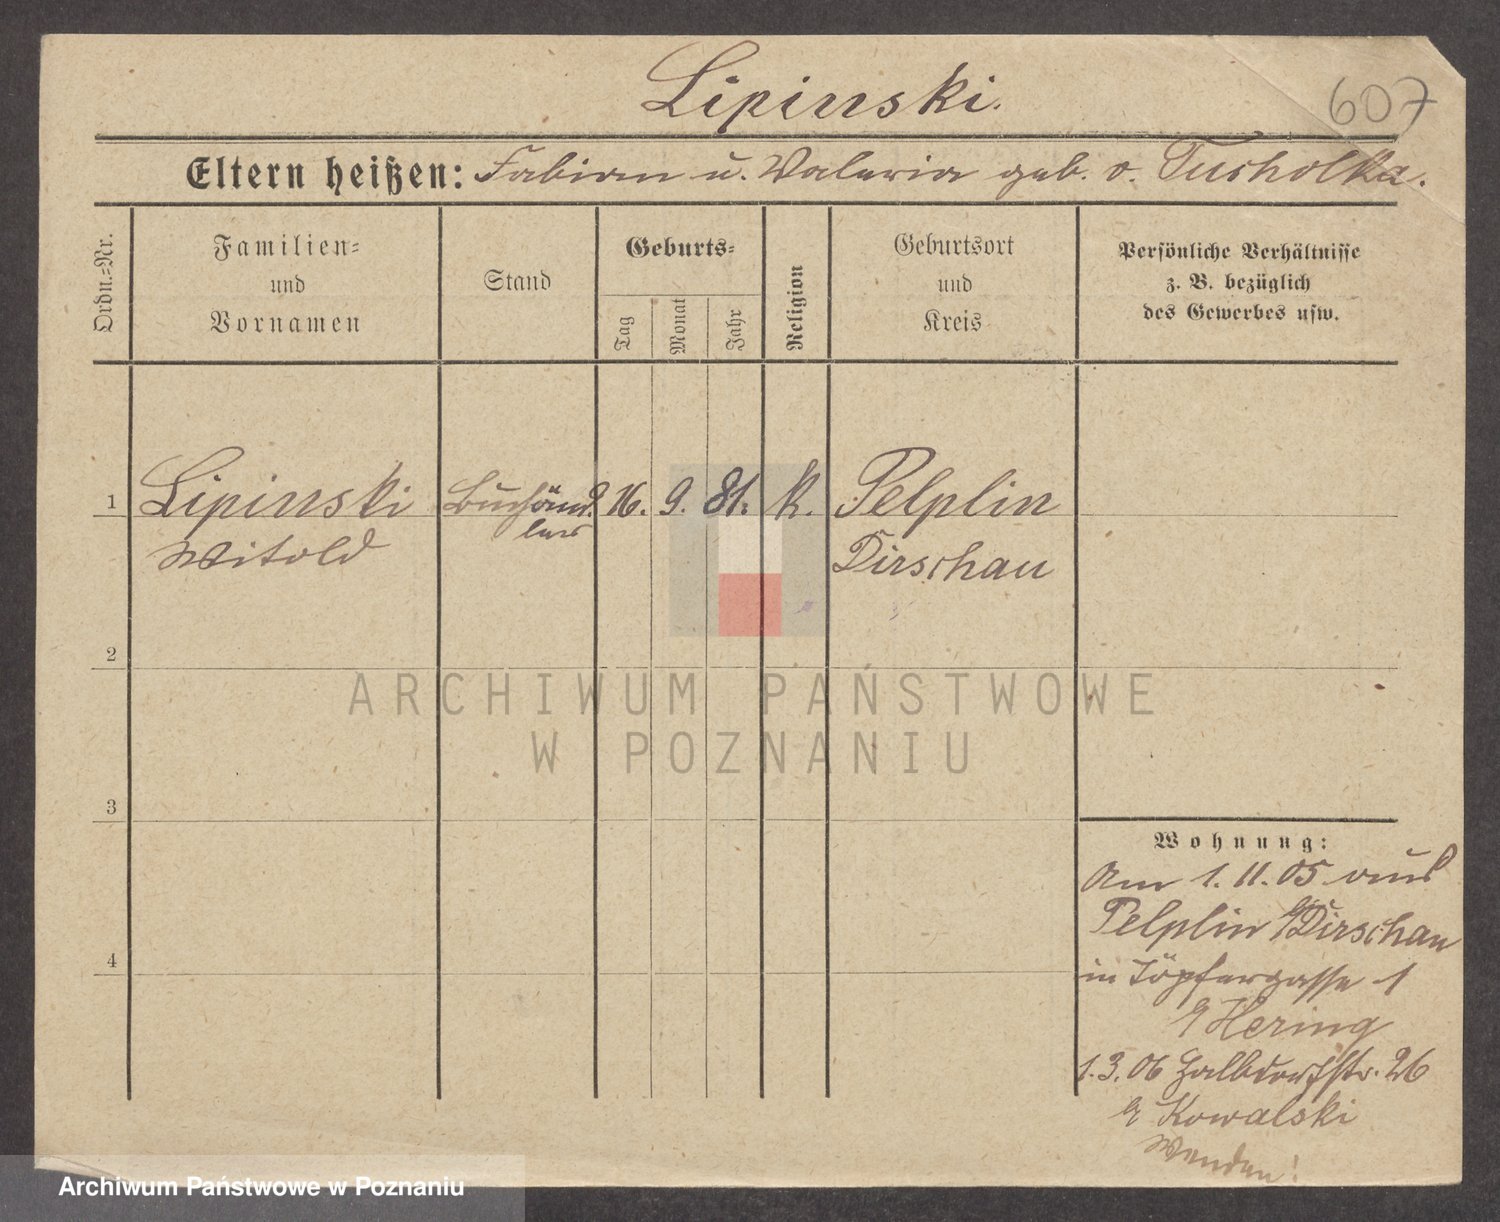 Lipinski.
607
Eltern heißen: Fabian u. Valeria geb. v. Tucholka.
Ordn.=Nr.
Familien=
und
Vornamen
Stand
Geburts=
Tag
Monat
Jahr
Religion
Geburtsort
und
Kreis
Persönliche Verhältnisse
z. B. bezüglich
des Gewerbes usw.
1
Lipinski
Witold
Buchhänd
ler
16. 9. 81. k.
Pelplin
Dirschau
2
ARCHIWUM PAŃSTWOWE
W POZNANIU
3
4
Wohnung:
Am 1. 11. 05 aus
Pelplin Dirschau
in Töpfergasse 1
Hering
1. 3. 06 Halbdorfstr. 26
Kowalski
Wenden!
Archiwum Państwowe w Poznaniu